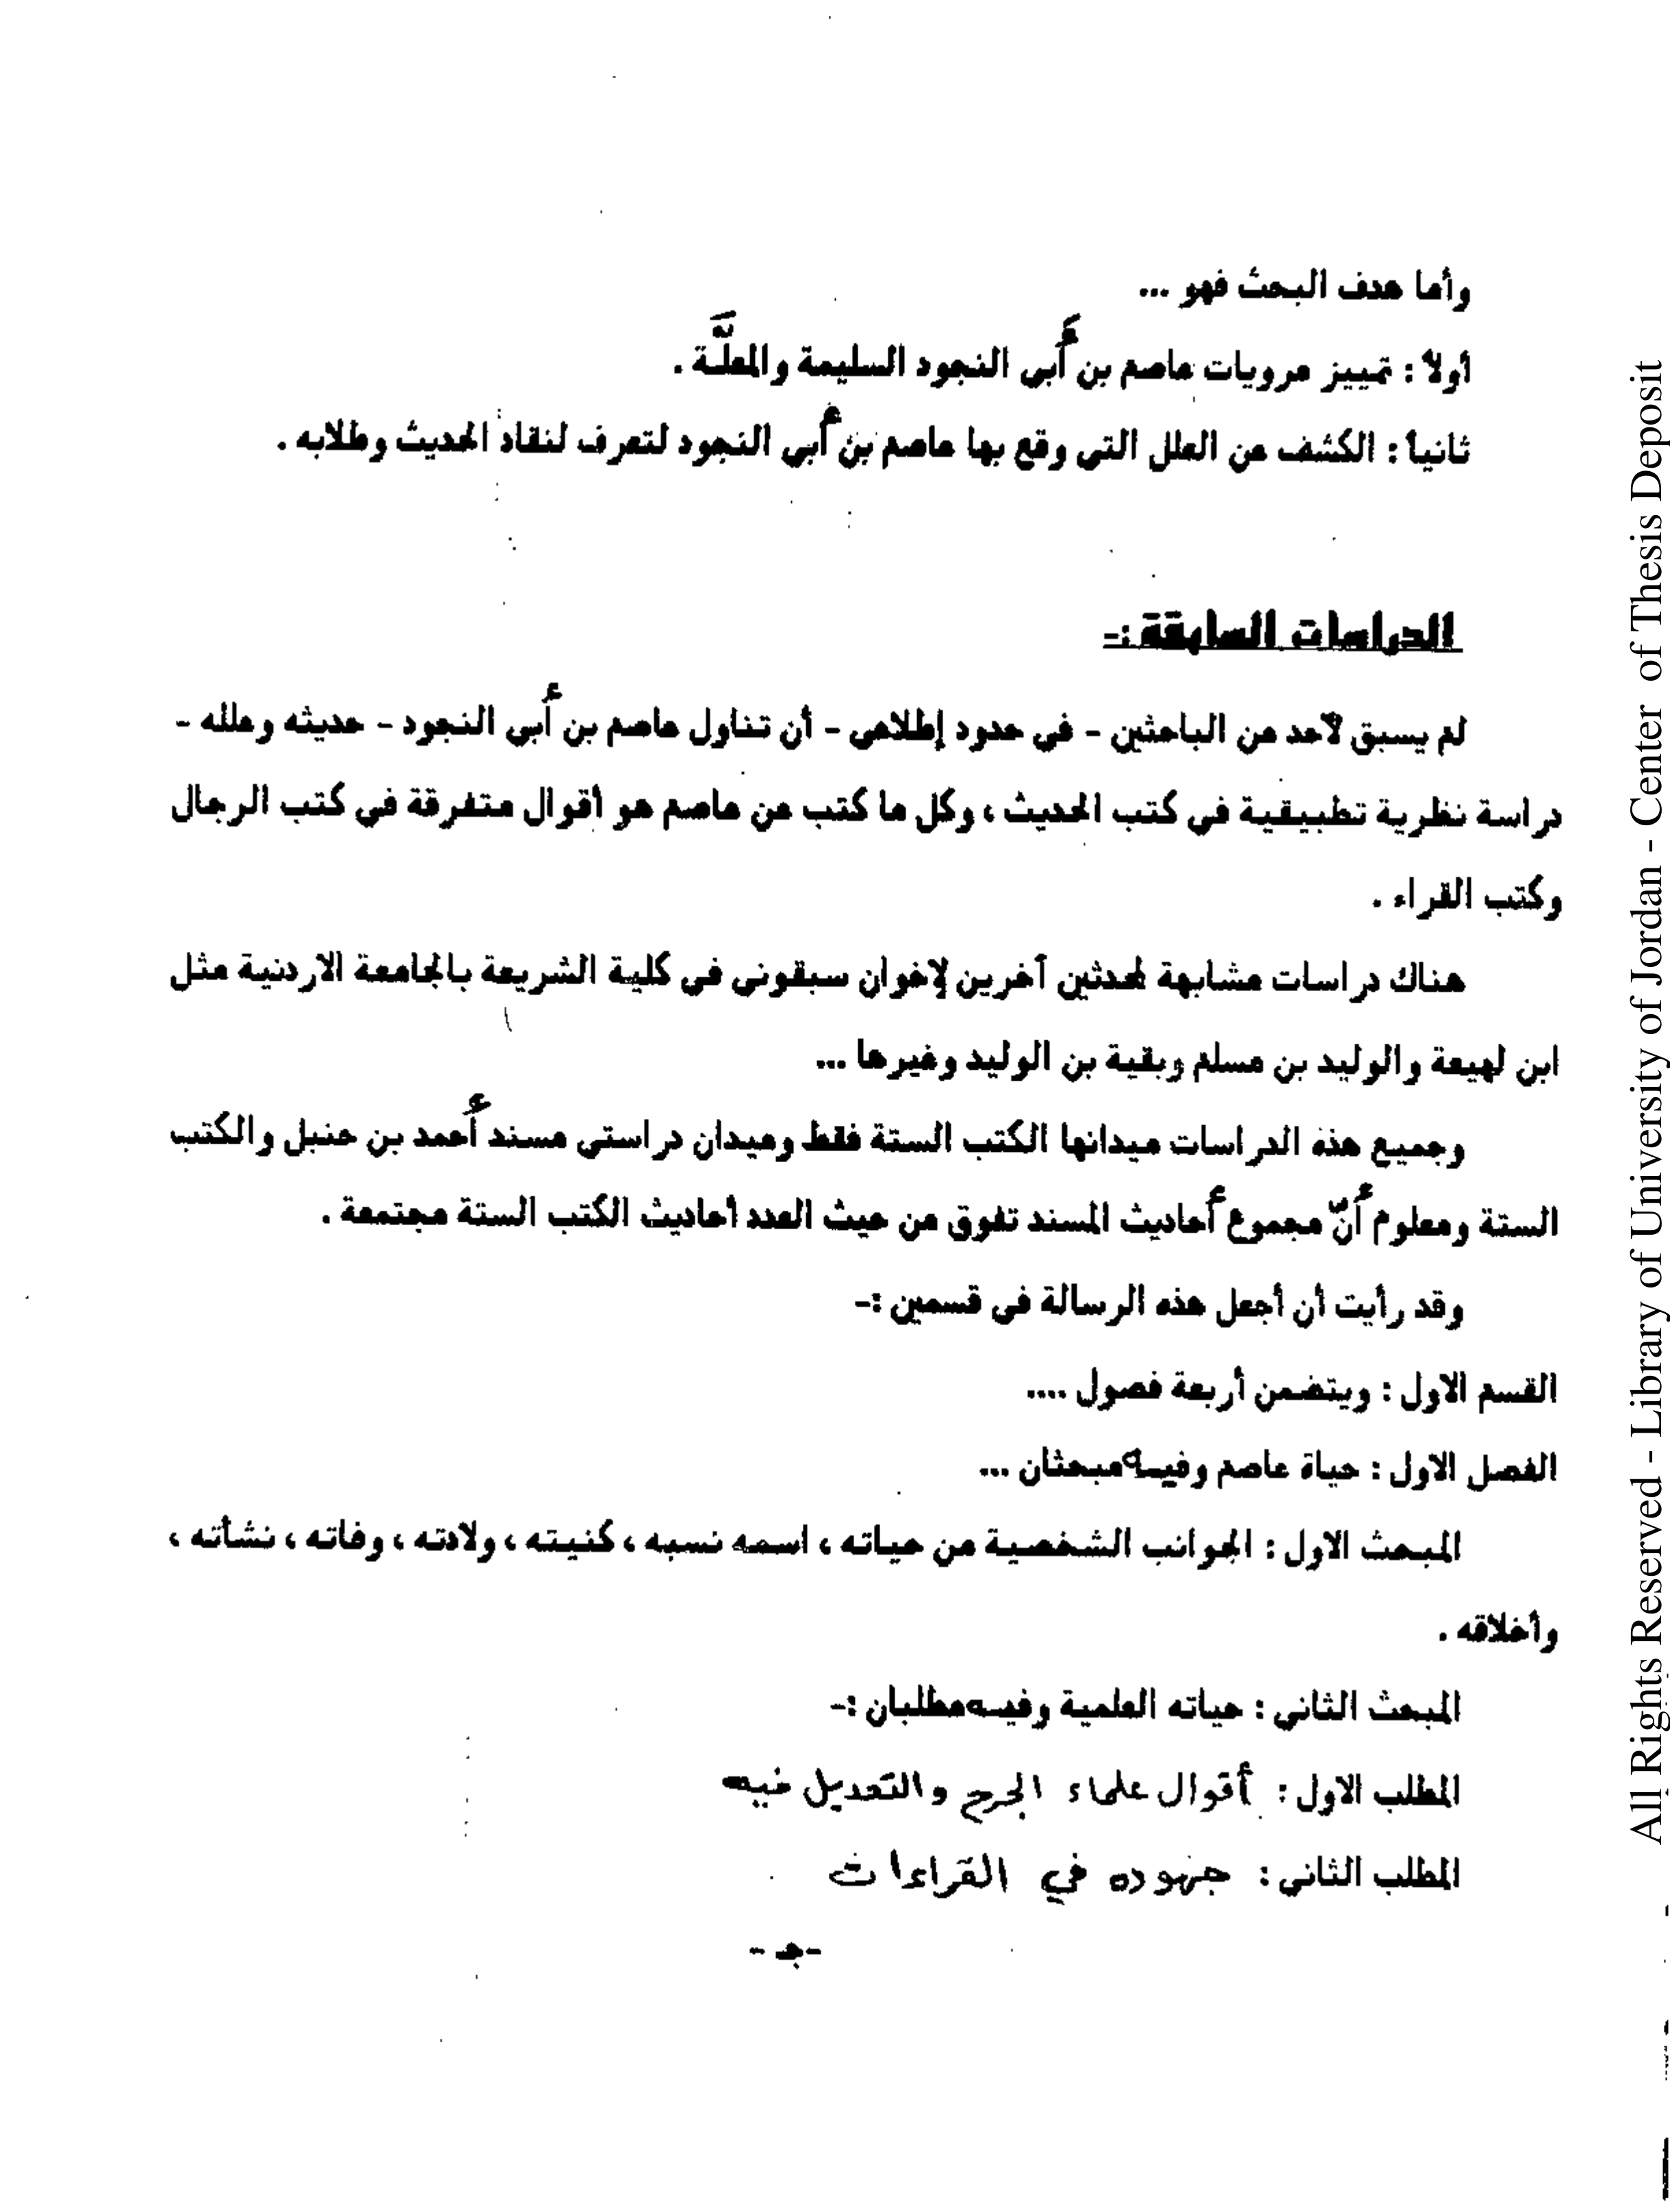 وأما هدف البحث فهو ...
أولاً : تمييز مرويات عاصم بن أبي النجود السليمة والمعلَّة .
ثانياً : الكشف عن العلل التي وقع بها عاصم بن أبي النجود لتعرف لنقاد الحديث وطلابه .
الدراسات السابقة :-
لم يسبق لأحد من الباحثين - في حدود إطلاعي - أن تناول عاصم بن أبي النجود - حديثه وعلله -
دراسة نظرية تطبيقية في كتب الحديث ، وكل ما كتب عن عاصم هو أقوال متفرقة في كتب الرجال
وكتب القراء .
هناك دراسات مشابهة لمحدثين آخرين لإخوان سبقوني في كلية الشريعة بالجامعة الاردنية مثل
ابن لهيعة والوليد بن مسلم وبقية بن الوليد وغيرها ...
وجميع هذه الدراسات ميدانها الكتب الستة فقط وميدان دراستي مسند أحمد بن حنبل والكتب
الستة ومعلوم أنّ مجموع أحاديث المسند تفوق من حيث العدد أحاديث الكتب الستة مجتمعة .
وقد رأيت أن أجعل هذه الرسالة في قسمين :-
القسم الاول : ويتضمن أربعة فصول ....
الفصل الاول : حياة عاصم وفيه مبحثان ...
المبحث الاول : الجوانب الشخصية من حياته ، اسمه نسبه ، كنيته ، ولادته ، وفاته ، نشأته ،
وأخلاقه .
المبحث الثاني : حياته العلمية وفيه مطلبان :-
المطلب الاول : أقوال علماء الجرح والتعديل فيه
المطلب الثاني : جهوده في القراءات
-جـ -
All Rights Reserved - Library of University of Jordan - Center of Thesis Deposit